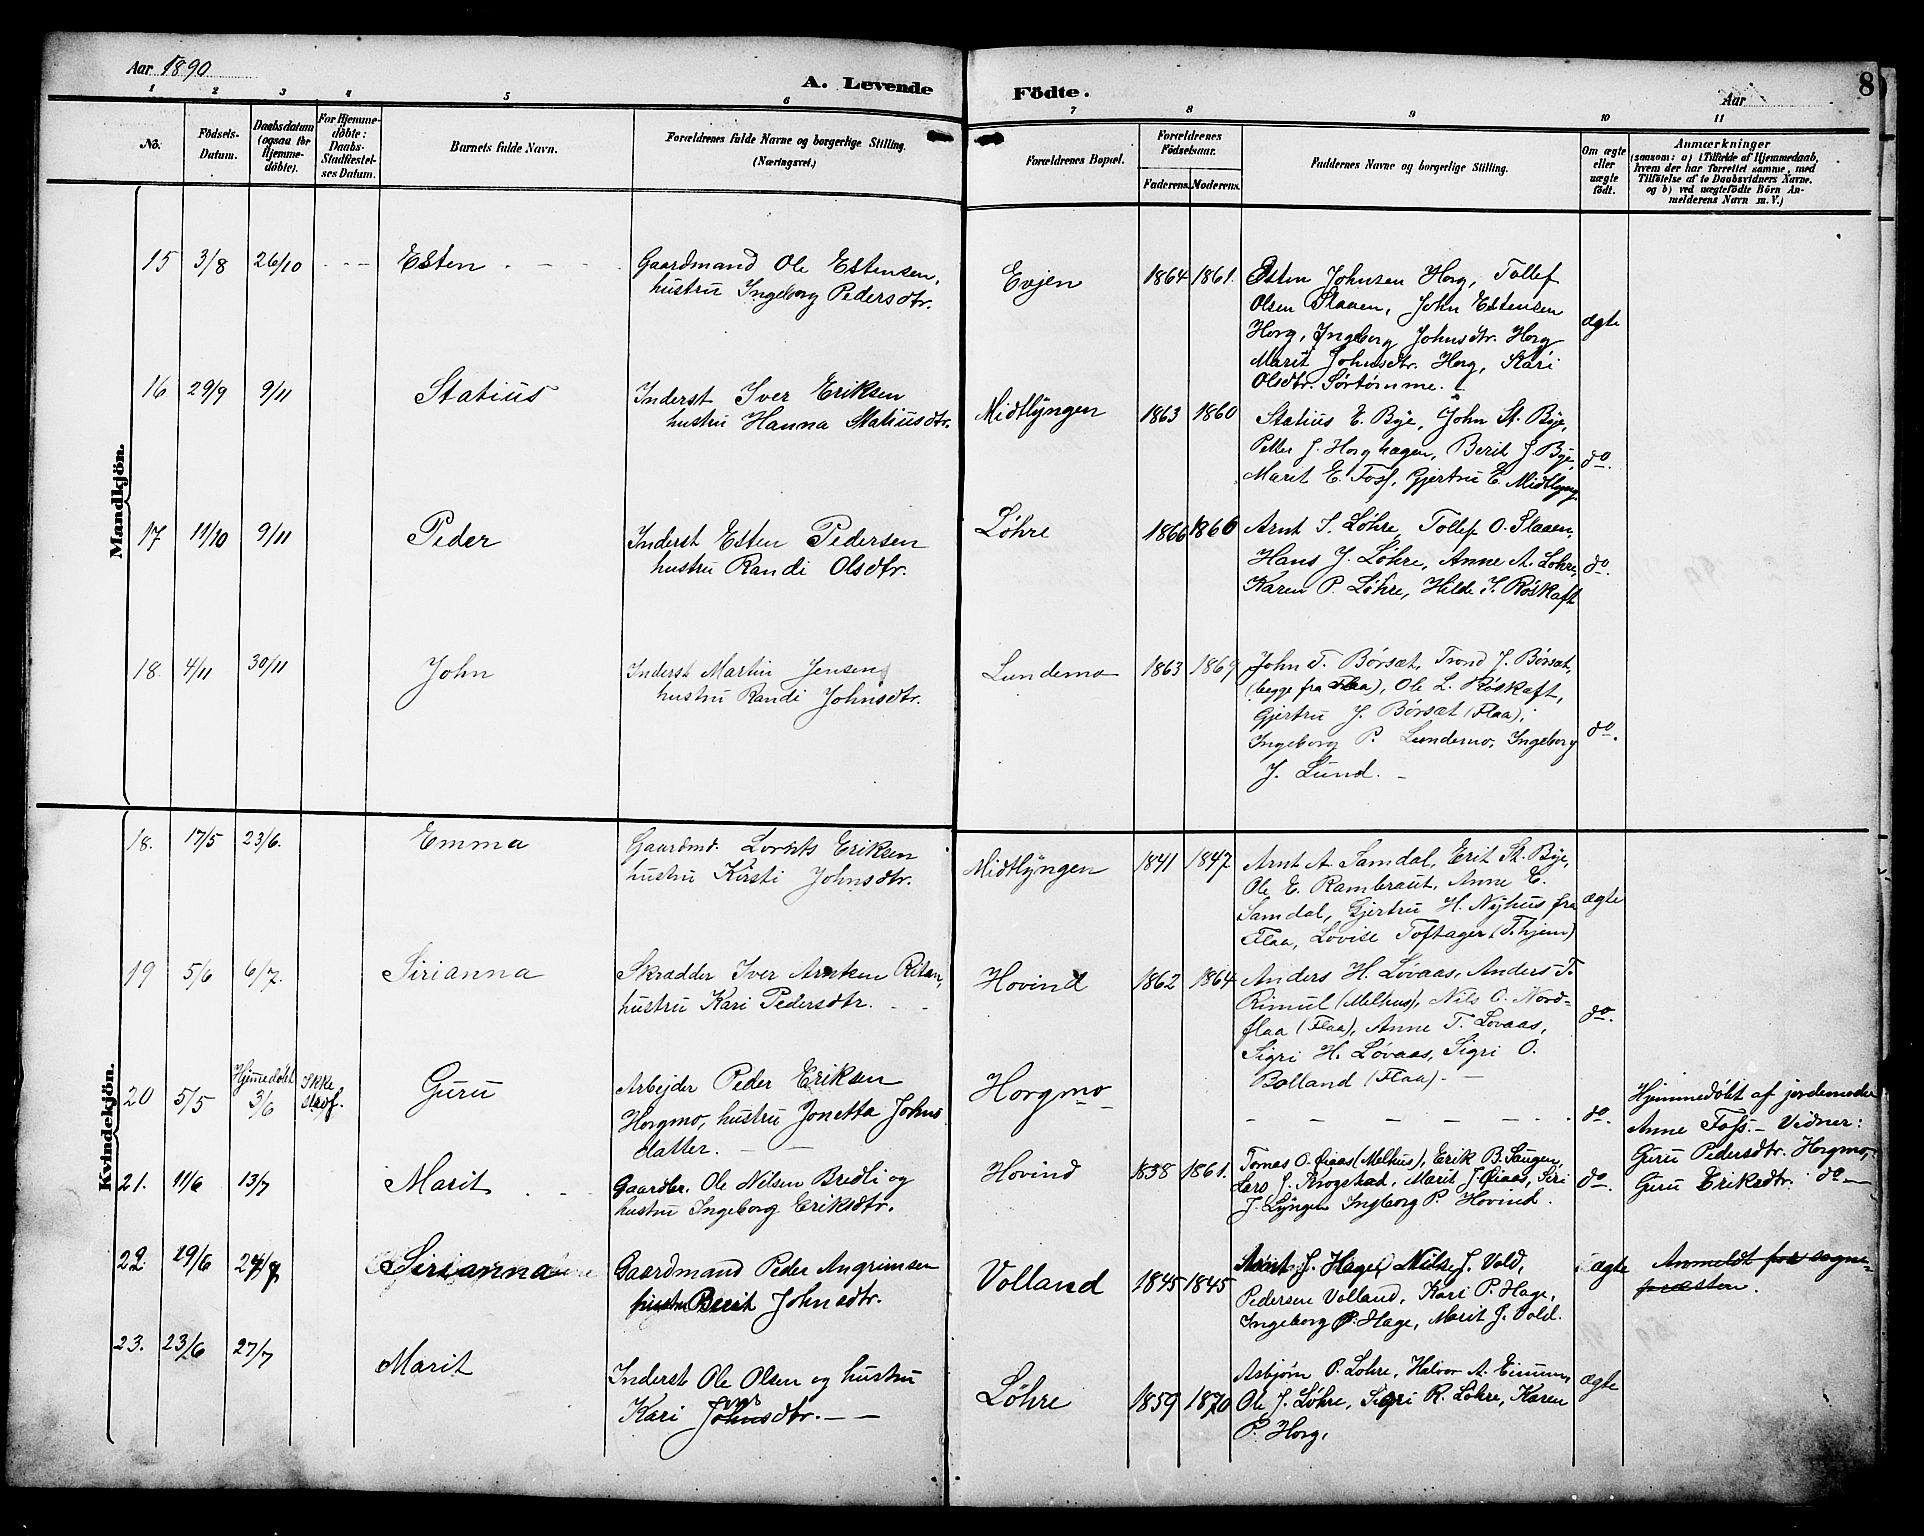 Aar 1890
A. Levende Födte.
Aar
8
1 2 3 4 5 6 7 8 9 10 11
No. Födsels-Datum. Daabsdatum (ogsaa for Hjemme-döbte). For Hjemme-döbte: Daabs-Stadfæstel-ses Datum. Barnets fulde Navn. Forældrenes fulde Navne og borgerlige Stilling. (Næringsvei.) Forældrenes Bopæl. Forældrenes Födselsaar. Faderens. Moderens. Faddernes Navne og borgerlige Stilling. Om ægte eller uægte födt. Anmærkninger (saasom: a) i Tilfælde af Hjemmedaab, hvem der har forrettet samme, med Tilföielse af to Daabsvidners Navne, og b) ved uægtefödte Börn An-melderens Navn m. V.)
Mandkjön.
15 3/8 26/10 - - - Esten Gaardmand Ole Estensen,
hustru Ingeborg Pedersdtr.
Evjen 1864 1861. Esten Johnsen Horg, Tollef
Olsen Slaaen, John Estensen
Horg, Ingeborg Johnsdtr. Horg
Marit Johnsdtr. Horg, Kari
Olsdtr. Sørtømme.
ægte
16 29/9 9/11 Statius Inderst Iver Eriksen
hustru Hanna Statiusdtr.
Midtlyngen 1863 1860 Statius E. Bye, John St. Bye,
Petter J. Horghagen, Berit J. Bye,
Marit E. Foss, Gjertru E. Midtlyng.
do.
17 11/10 9/11 Peder Inderst Esten Pedersen
hustru Randi Olsdtr.
Løhre 1866 1860 Arnt S. Løhre, Tollef O. Slaaen,
Hans J. Løhre, Anne A. Løhre,
Karen P. Løhre, Hilde J. Røskaft
do.
18. 4/11 30/11 John Inderst Martin Jensen
hustru Randi Johnsdtr.
Lundemo 1863 1869 John T. Børsæt, Trond J. Børsæt,
(begge fra Flaa), Ole L. Røskaft,
Gjertru J. Børsæt (Flaa),
Ingeborg P. Lundemo, Ingeborg
J. Lund. -
do.
Kvindekjön.
18. 17/5 23/6. Emma Gaardmd. Lornts Eriksen
hustru Kirsti Johnsdtr.
Midtlyngen 1841 1847 Arnt A. Samdal, Erik St. Bye,
Ole E. Rambraut, Anne E.
Samdal, Gjertru H. Nyhus fra
Flaa, Lovise Toftager (T.hjem)
ægte
19 5/6 6/7. Sirianna Skrædder Iver Arntsen Ritan,
hustru Kari Pedersdtr.
Hovind 1862 1864 Anders H. Løvaas, Anders T.
Rimul (Melhus), Nils O. Nord-
flaa (Flaa), Anne T. Løvaas,
Sigri H. Løvaas, Sigri O.
Bolland (Flaa). -
do.
20 5/5 Hjemmedøbt 3/6 Ikke stadf. Guru Arbejder Peder Eriksen
Horgmo, hustru Jonetta Johns
datter. -
Horgmo - - - - - - do. Hjemmedøbt af jordemoder
Anne Foss. - Vidner:
Guru Pedersdtr. Horgmo,
Guru Eriksdtr. do -
21. 11/6 13/7 Marit Gaardbr. Ole Nilsen Bredli og
hustru Ingeborg Eriksdtr.
Hovind 1838 1861. Tomas O. Øiaas (Melhus), Erik B. Haugen,
Lars J. Krogstad, Marit J. Øiaas, Siri
J. Lyngen Ingborg P. Hovind.
do.
22. 19/6 27/7 Sirianna Gaardmand Peder Angrimsen
hustru Berit Johnsdtr.
Volland 1845 1845 Arnt J. Hage, Nils J. Vold,
Pedersen Volland, Kari P. Hage,
Ingeborg P. Hage, Marit J. Vold.
ægte Anmeldt for sogne-
præsten.
23. 23/6 27/7 Marit Inderst Ole Olsen og hustru
Kari Johnsdtr. - -
Løhre 1859 1870 Asbjørn P. Lohre, Halvor A. Eimum,
Ole J. Løhre, Sigri R. Løhre, Karen
P. Horg,
ægte